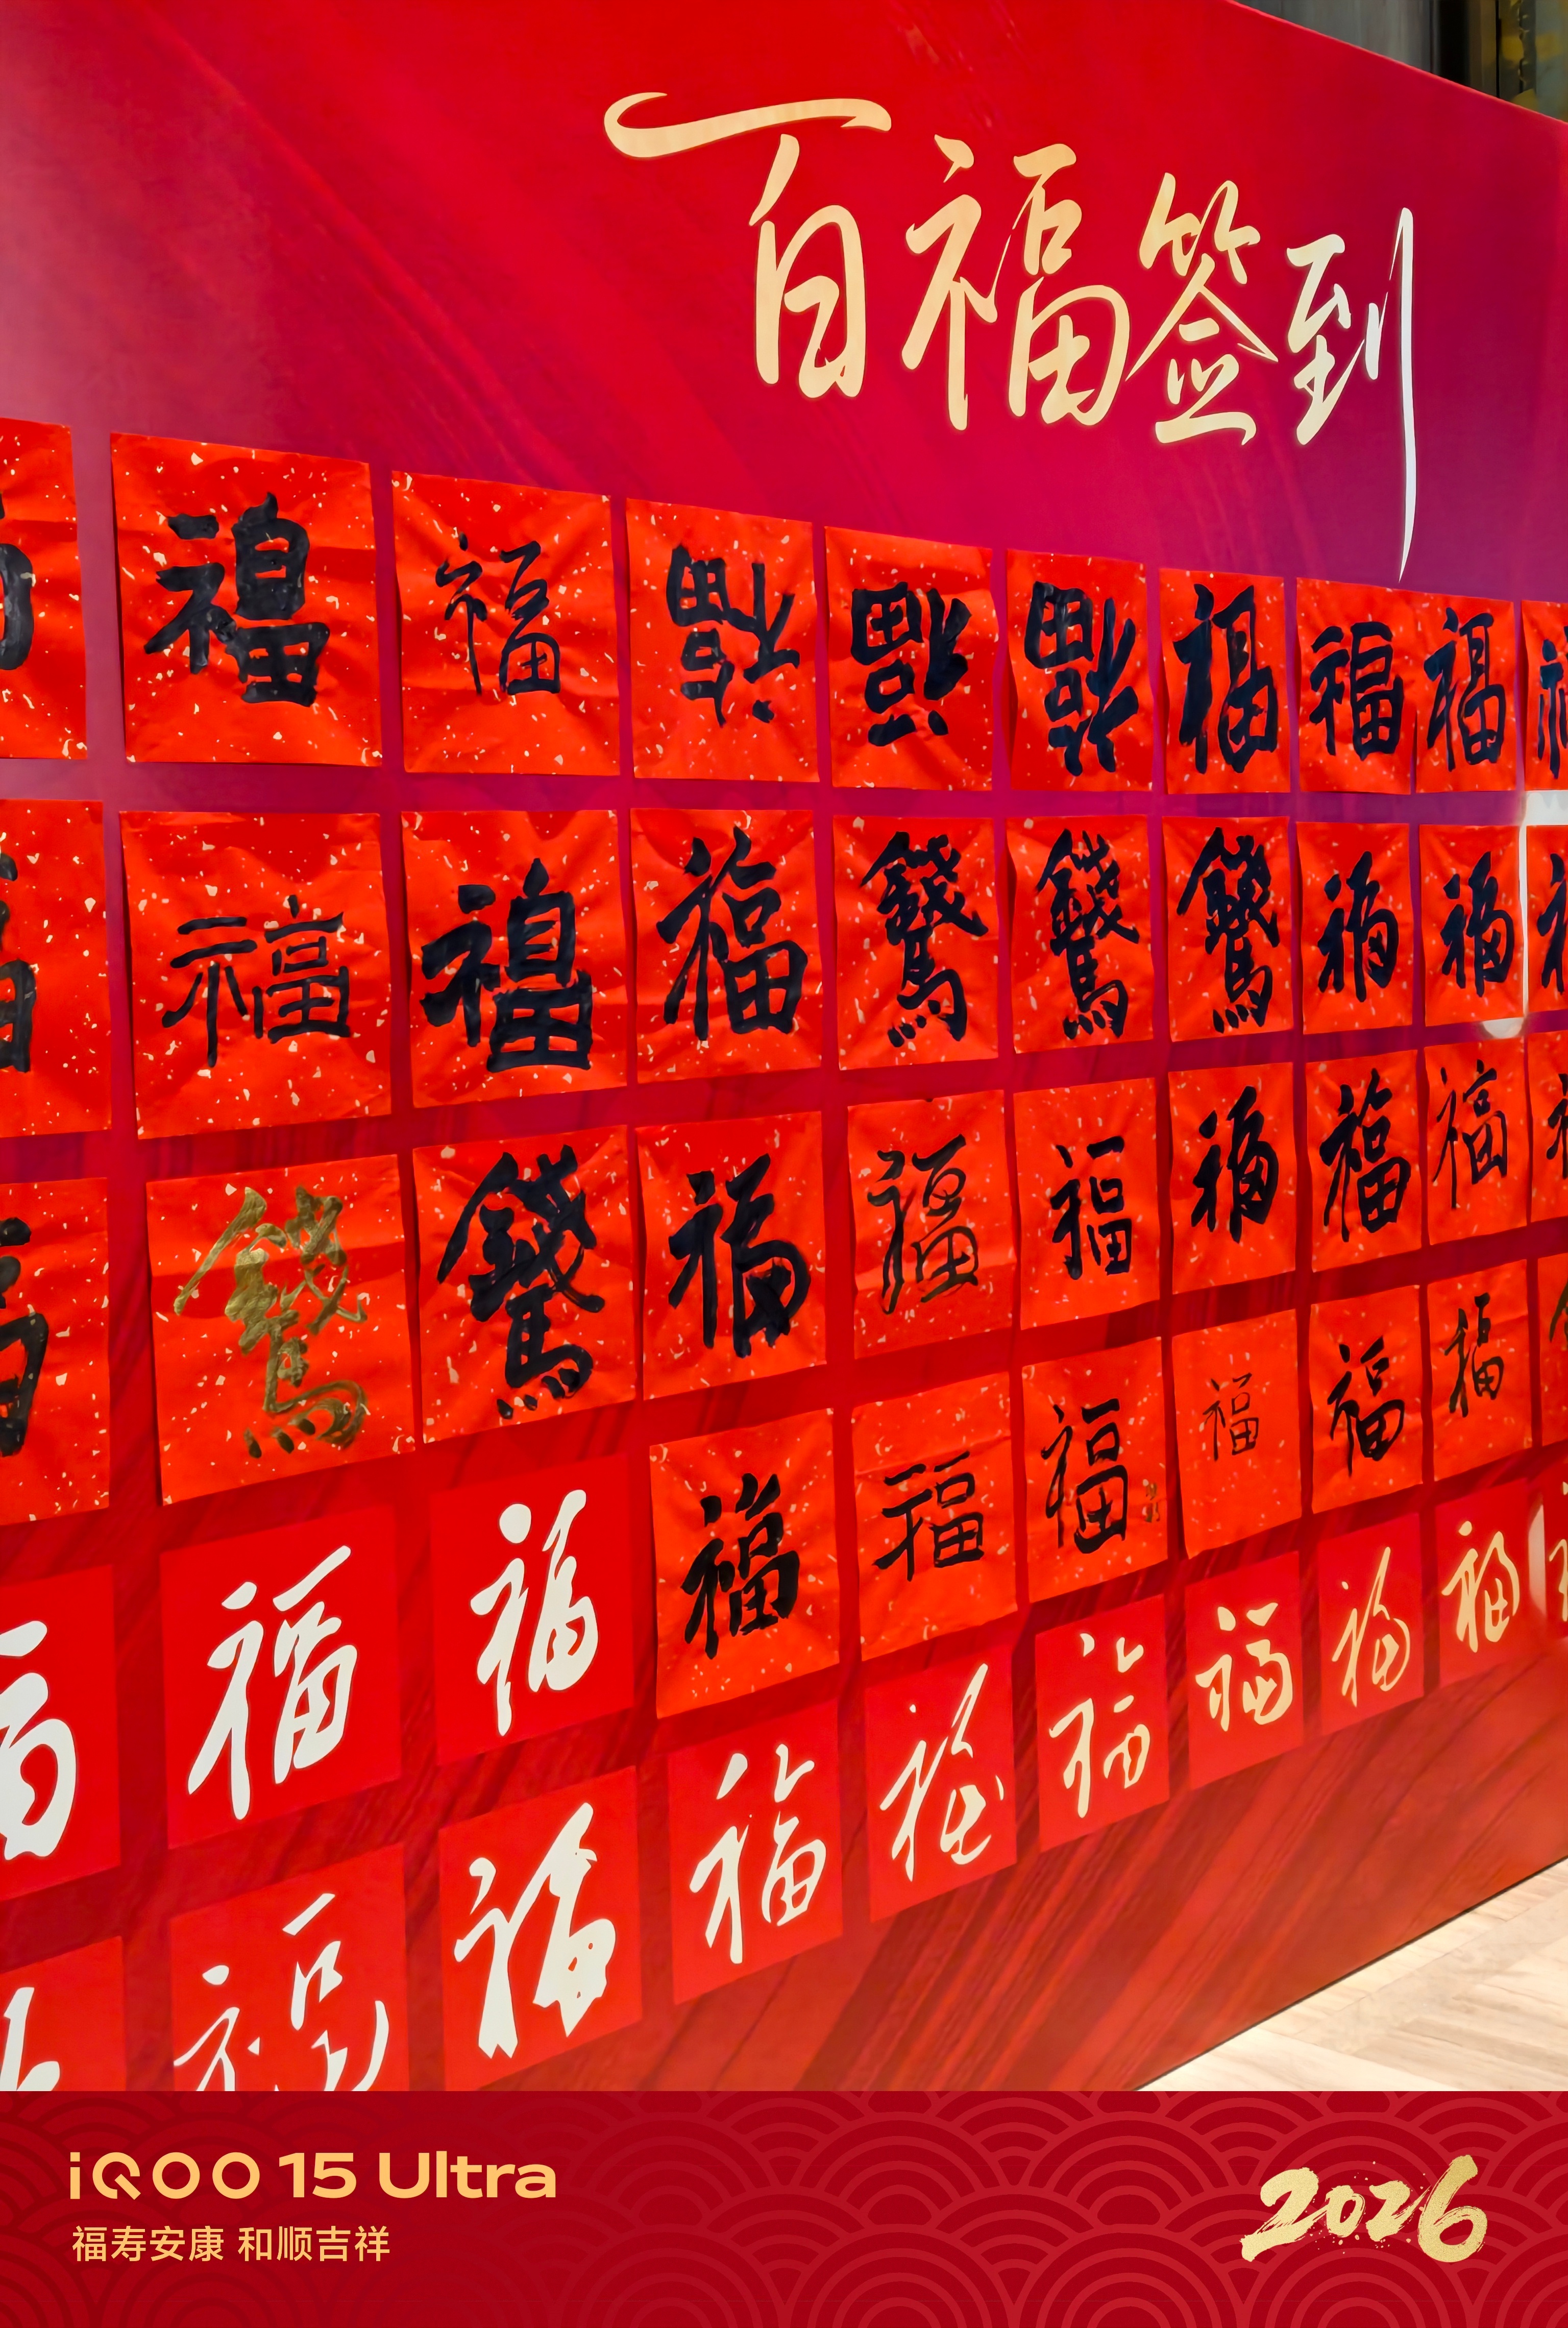 百福签到
福 福 福 福 福 福 福 福
福 福 福 錢馬 錢馬 錢馬 福 福
錢馬 錢馬 福 福 福 福 福 福
福 福 福 福 福 福 福 福
福 福 福 福 福 福 福 福
iQOO 15 Ultra
福寿安康 和顺吉祥
2026